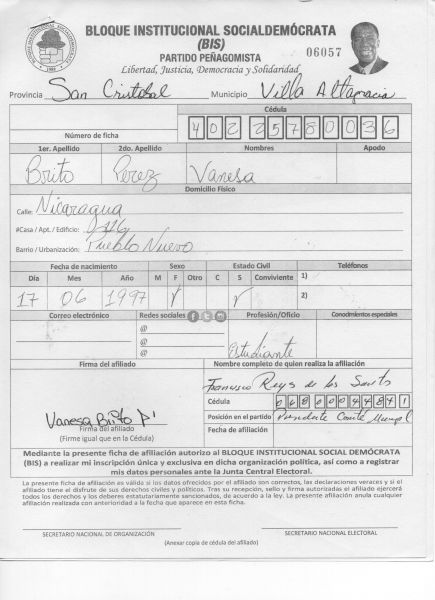 BLOQUE INSTITUCIONAL SOCIALDEMÓCRATA
(BIS)
PARTIDO PEÑAGOMISTA
06057
Libertad, Justicia, Democracia y Solidaridad
Provincia San Cristobal Municipio Villa Altagracia
Cédula
Número de ficha 402 2578003 6
1er. Apellido 2do. Apellido Nombres Apodo
Brito Perez Vanesa
Domicilio Físico
Calle: Nicaragua
#Casa / Apt. / Edificio: 116
Barrio / Urbanización: Pueblo Nuevo
Fecha de nacimiento Sexo Estado Civil Teléfonos
Día Mes Año M F Otro C S Conviviente 1)
17 06 1997 2)
Correo electrónico Redes sociales Profesión/Oficio Conocimientos especiales
@
@
@ Estudiante
Firma del afiliado Nombre completo de quien realiza la afiliación
Francisco Reys de los Santos
Cédula 06800044841
Vanesa Brito P Posición en el partido Presidente Comité
Firma del afiliado Fecha de afiliación
(Firme igual que en la Cédula)
Mediante la presente ficha de afiliación autorizo al BLOQUE INSTITUCIONAL SOCIAL DEMÓCRATA
(BIS) a realizar mi inscripción única y exclusiva en dicha organización política, así como a registrar
mis datos personales ante la Junta Central Electoral.
La presente ficha de afiliación es válida si los datos ofrecidos por el afiliado son correctos, las declaraciones veraces y si el
afiliado tiene el disfrute de sus derechos civiles y políticos. Tras su recepción, sello y firma autorizadas el afiliado ejercerá
todos los derechos y los deberes estatutariamente sancionados, de acuerdo a la ley. La presente afiliación anula cualquier
afiliación realizada con anterioridad a la fecha que aparece en esta ficha.
SECRETARIO NACIONAL DE ORGANIZACIÓN SECRETARIO NACIONAL ELECTORAL
(Anexar copia de cédula del afiliado)